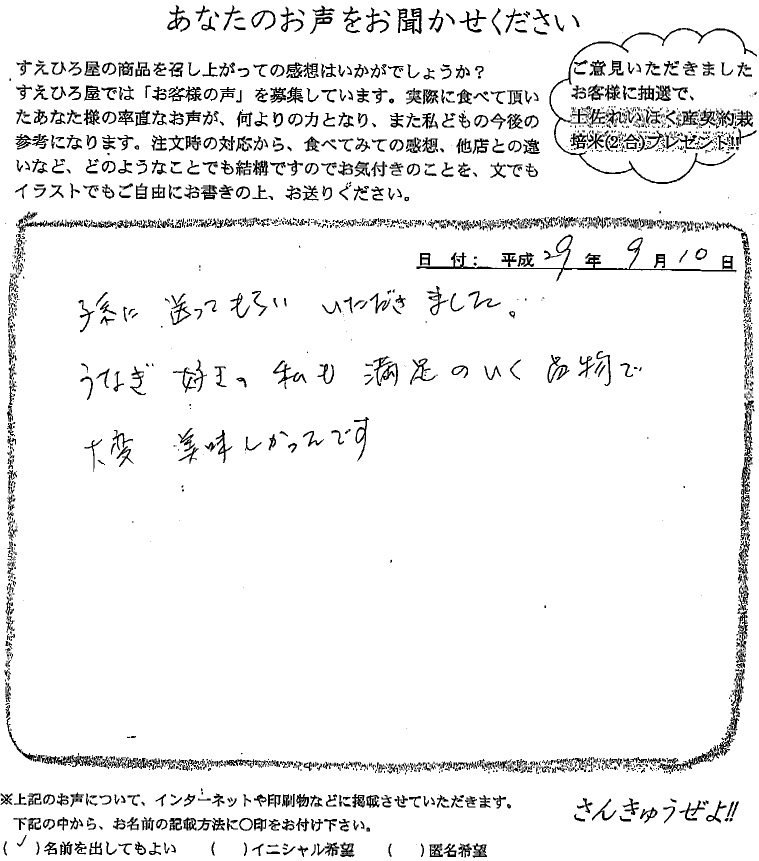 あなたのお声をお聞かせください
すえひろ屋の商品を召し上がっての感想はいかがでしょうか？
すえひろ屋では「お客様の声」を募集しています。実際に食べて頂い
たあなた様の率直なお声が、何よりの力となり、また私どもの今後の
参考になります。注文時の対応から、食べてみての感想、他店との違
いなど、どのようなことでも結構ですのでお気付きのことを、文でも
イラストでもご自由にお書きの上、お送りください。
ご意見いただきました
お客様に抽選で、
土佐れいほく産契約栽
培米(2合)プレゼント!!
日 付： 平成 29 年 9 月 10 日
孫に 送ってもらい いただきました。
うなぎ 好きの 私も 満足のいく 品物で
大変 美味しかったです
※上記のお声について、インターネットや印刷物などに掲載させていただきます。
下記の中から、お名前の記載方法に〇印をお付け下さい。
(✓)名前を出してもよい ( )イニシャル希望 ( )匿名希望
さんきゅうぜよ!!